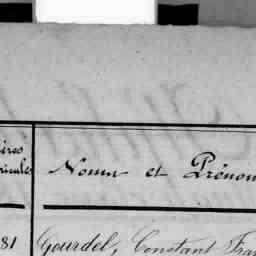 ères
ricules
Noms et Prénom
81 Gourdel, Constant Fran